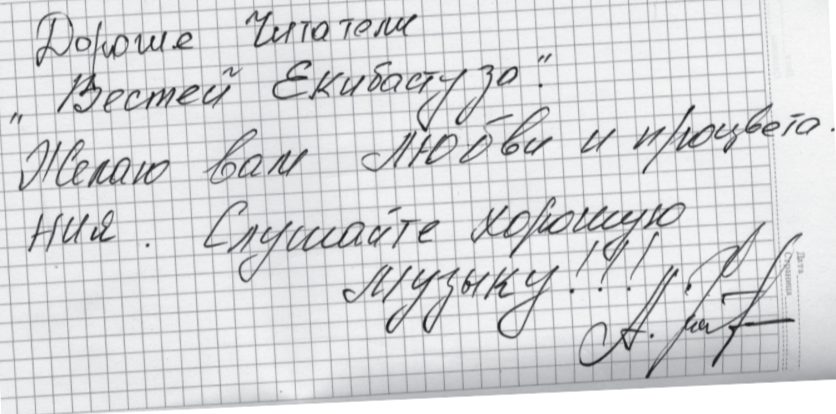 Дорогие Читатели
"Вестей Екибастуза".
Желаю вам Любви и процвета-
ния. Слушайте хорошую
музыку!!!